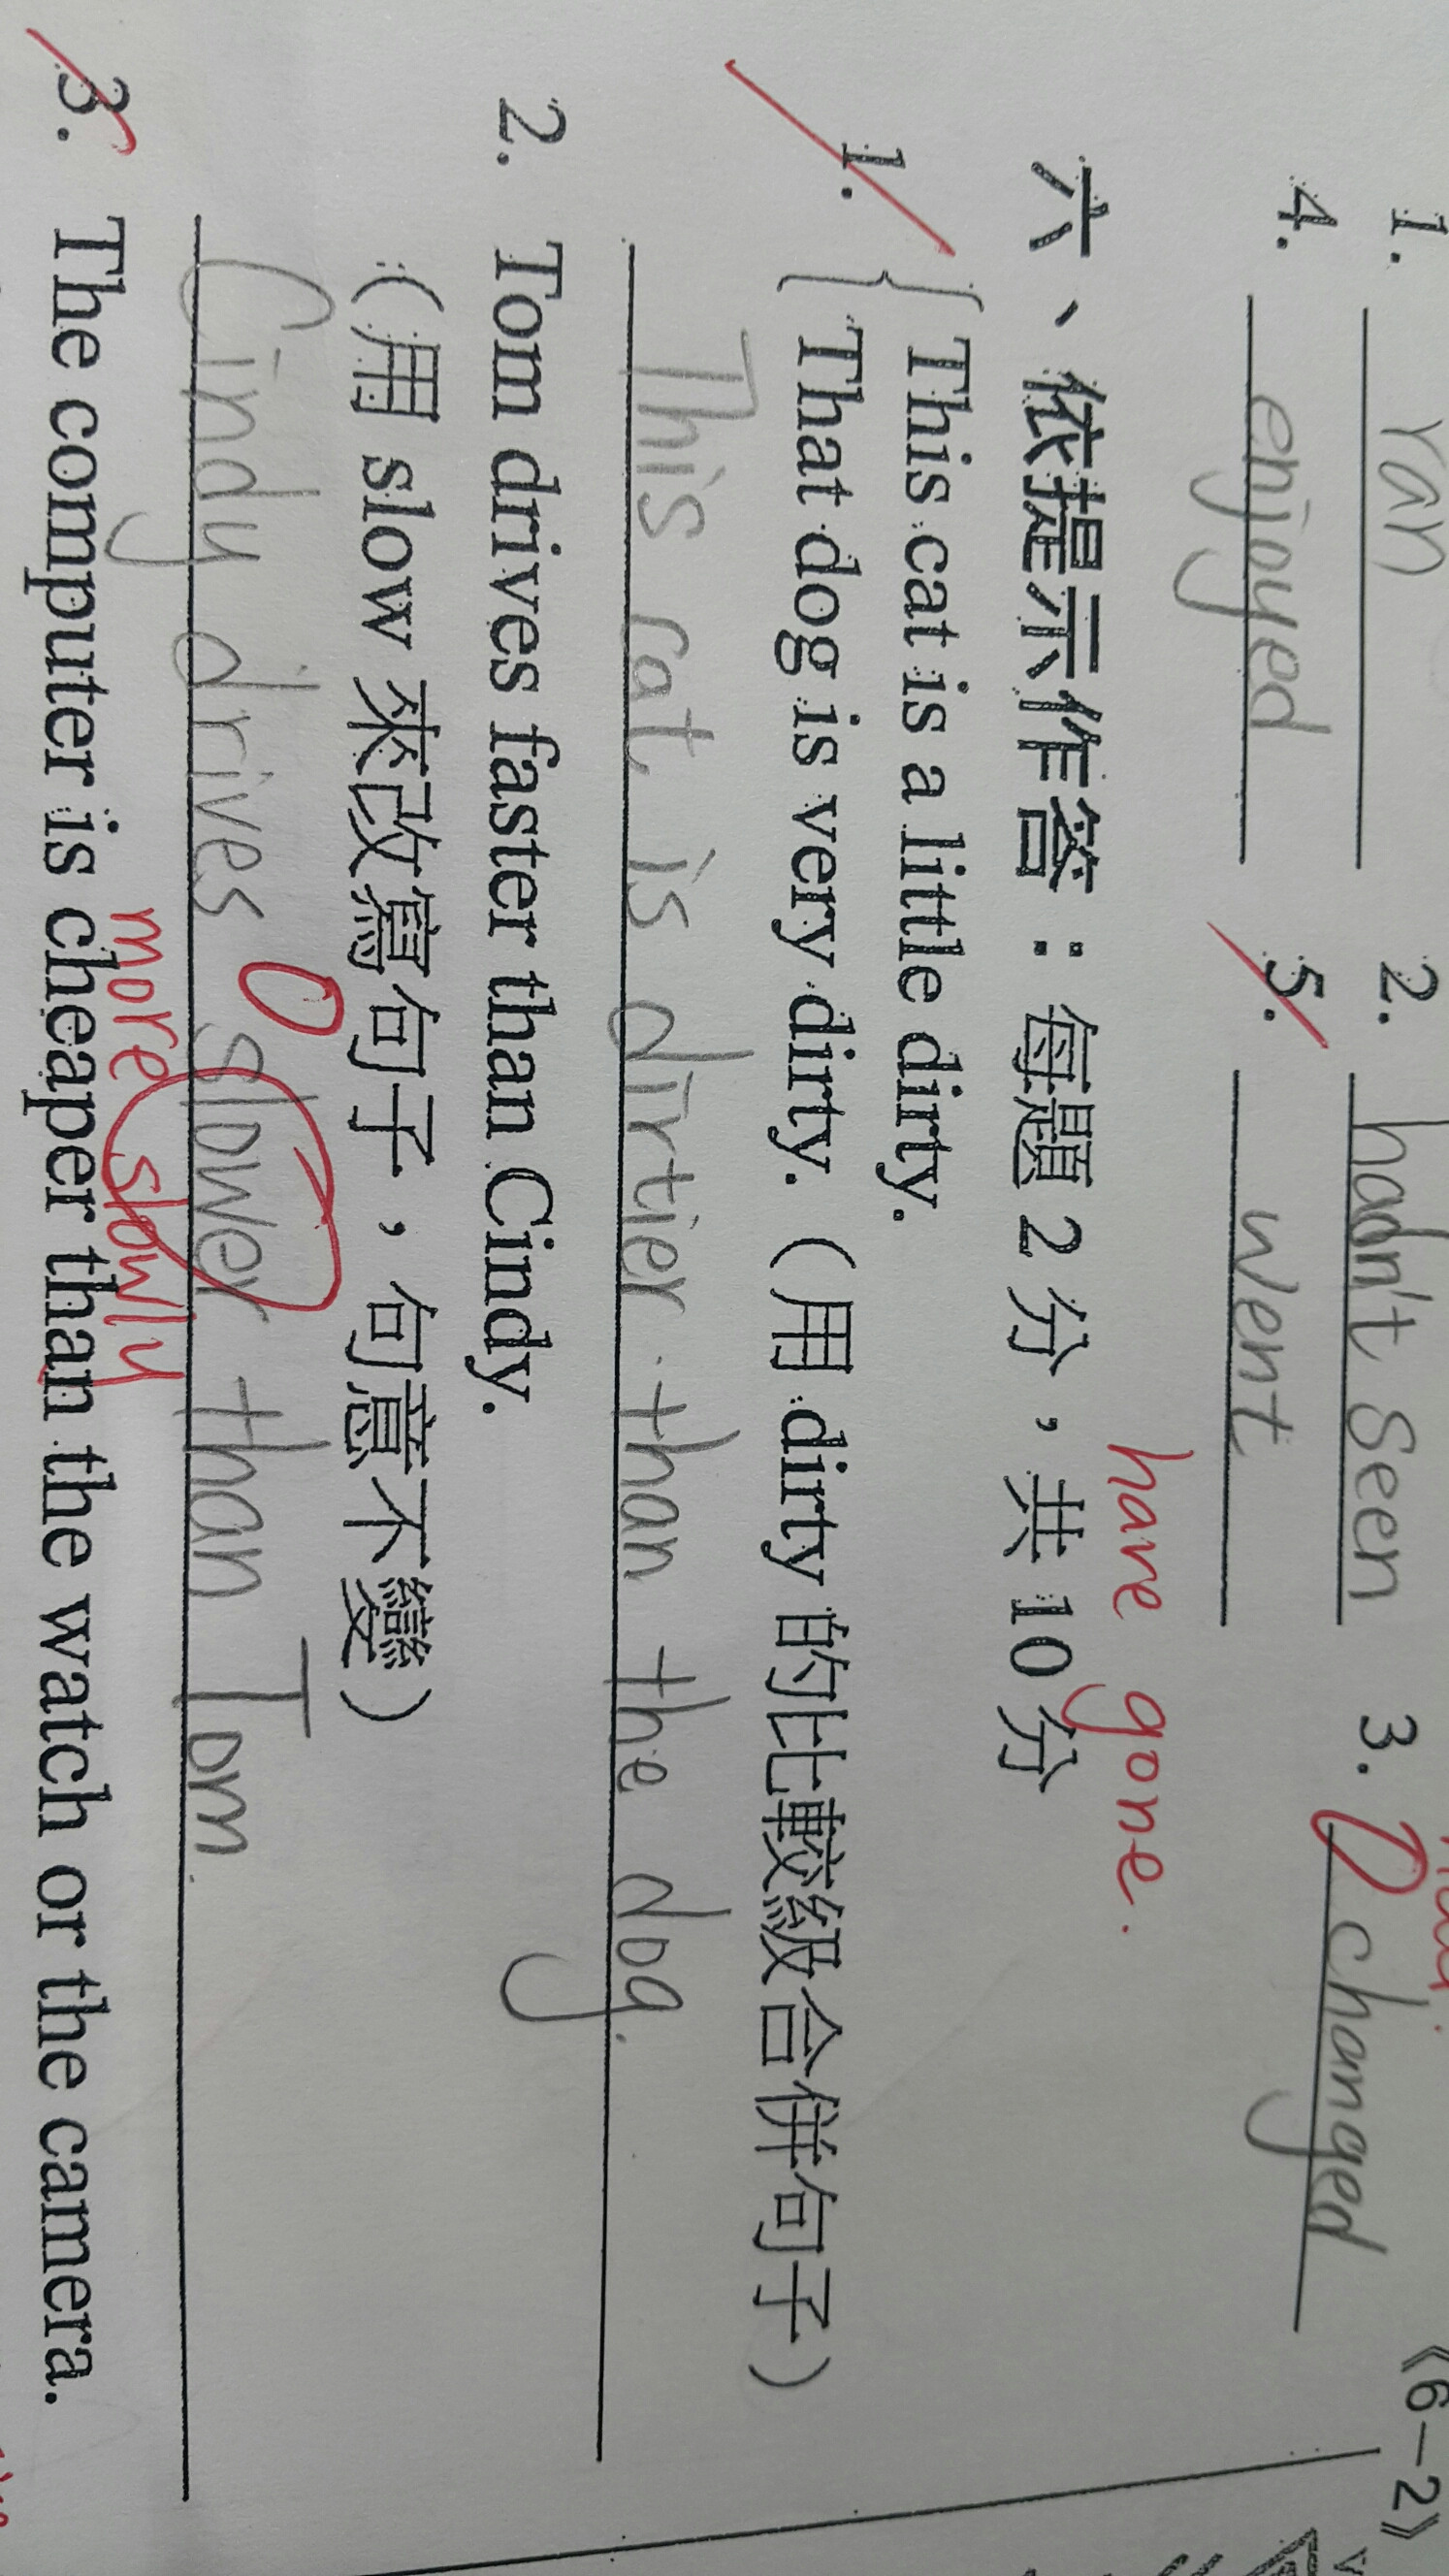 1. ran 2. hadn't seen 3. changed
4. enjoyed 5. went
have gone.
六、依提示作答：每題 2 分，共 10 分
1. This cat is a little dirty.
That dog is very dirty. (用 dirty 的比較級合併句子)
This cat is dirtier than the dog.
2. Tom drives faster than Cindy.
(用 slow 來改寫句子，句意不變)
Cindy drives slower than Tom.
more slowly
3. The computer is cheaper than the watch or the camera.
《6－2》